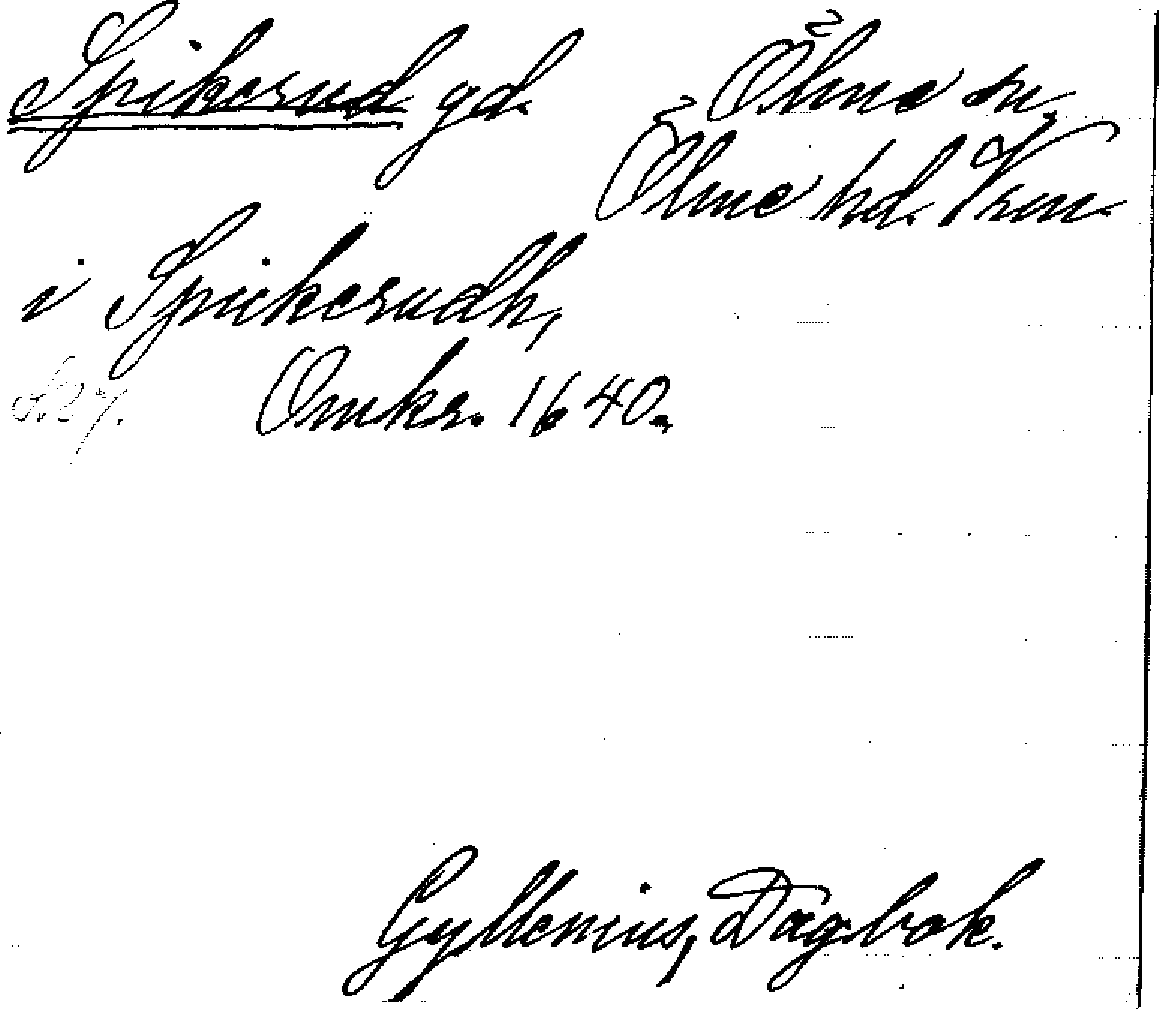 Spikerud gd. Ölme sn,
Ölme hd. Vrm.
i Spikerudh,
S. 27. Omkr. 1640.
Gyllenius, Dagbok.